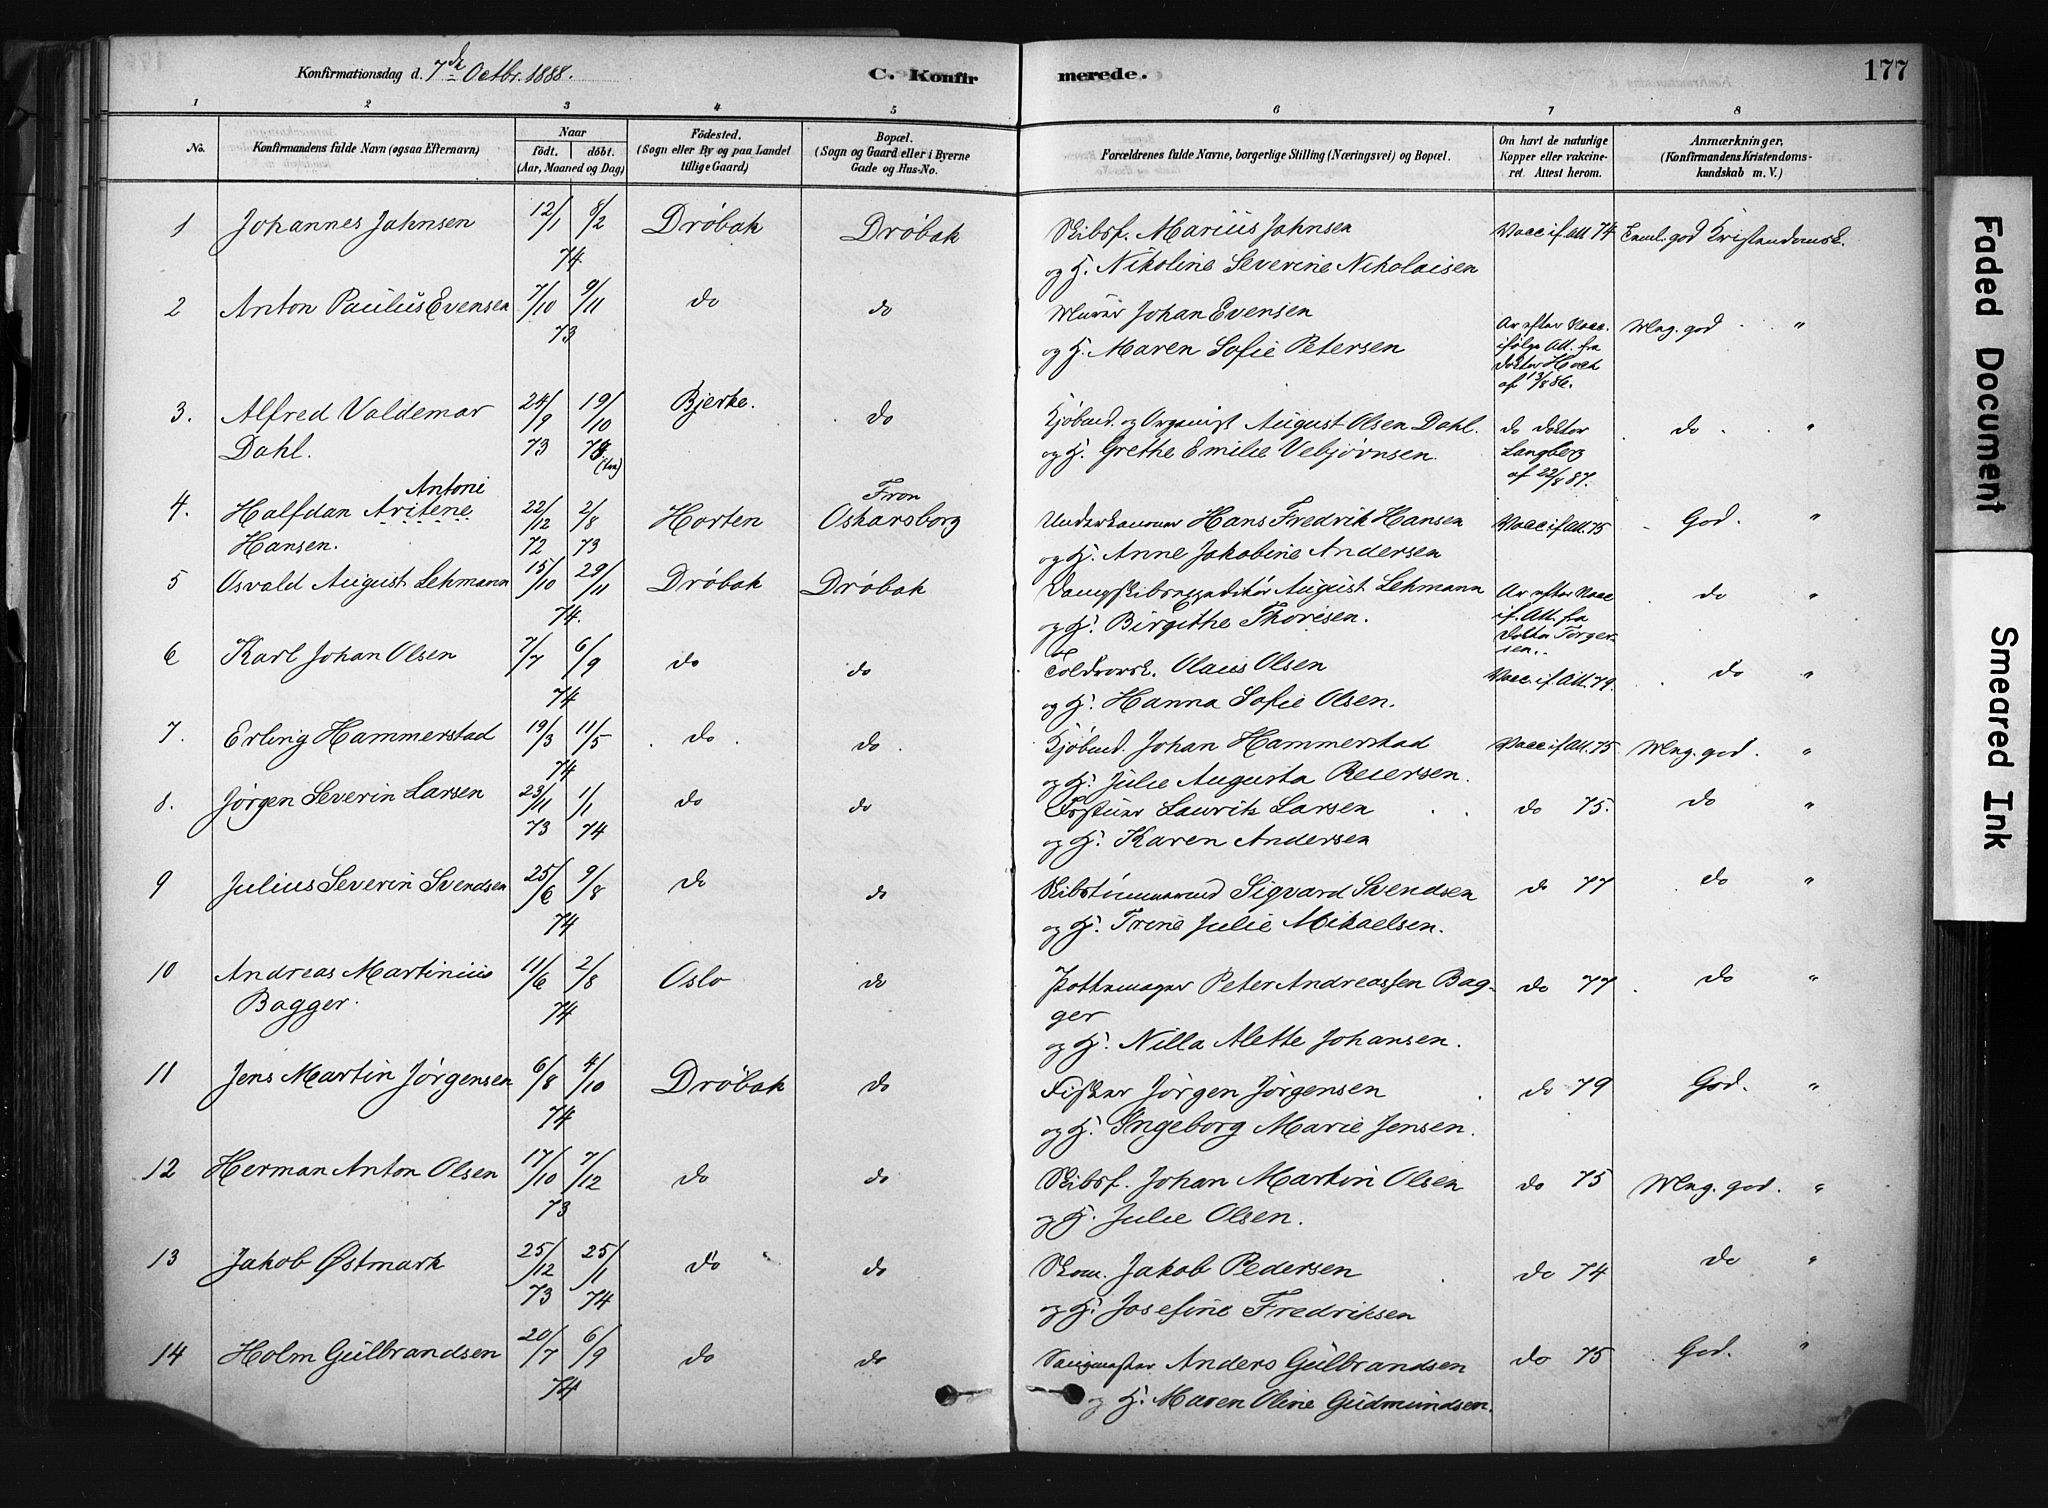 Konfirmationsdag d. 7de Octbr. 1888.
C. Konfir
merede.
177
1 2 3 4 5 6 7 8
No.
Konfirmandens fulde Navn (ogsaa Efternavn)
Naar
født. døbt.
(Aar, Maaned og Dag)
Födested.
(Sogn eller By og paa Landet
tillige Gaard)
Bopæl.
(Sogn og Gaard eller i Byerne
Gade og Hus-No.
Forældrenes fulde Navne, borgerlige Stilling (Næringsvei) og Bopæl.
Om havt de naturlige
Kopper eller vakcine-
ret. Attest herom.
Anmærkninger,
(Konfirmandens Kristendoms-
kundskab m. V.)
1 Johannes Jahnsen 12/1 8/2 Drøbak Drøbak Skibsf. Marius Jahnsen Vacc if att 74 god Kristendomsk.
74 og H. Nikoline Severine Nikolaisen
2 Anton Paulus Evensen 7/10 9/11 do do Murer Johan Evensen
73 og H. Maren Sofie Petersen
Ar efter Vacc. Mag. god "
ifølge Att. fra
Doktor
af 13/8 86.
3. Alfred Valdemar 24/9 19/10 Bjerke. do Kjøbmd. og Organist August Olsen Dahl. do Doktor do "
Dahl. 73 73 og H. Grethe Emilie Vebjørnsen. Langberg
af 22/8 87.
Antoni
Fron
4. Halfdan Aritene 22/12 2/8 Horten Oskarsborg Underkanoner Hans Fredrik Hansen Vacc if att. 75 God. "
Hansen. 72 73 og H. Anne Jakobine Andersen
5 Osvald August Lehmann 15/10 29/11 Drøbak Drøbak Dampskibsexpeditør August Lehmann Ar efter Vacc do "
74. og H. Birgithe Thoresen. if. Att. fra
Doktor Torger-
sen..
6 Karl Johan Olsen 7/7 6/9 do do Toldrorsk. Olaus Olsen Vacc. if. Att. 79. do "
74 og H. Hanna Sofie Olsen.
7. Erling Hammerstad 19/3 11/5 do do Kjøbmd. Johan Hammerstad Vacc if Att. 75 Mag. god. "
74 og H. Julie Augusta Reiersen.
8. Jørgen Severin Larsen 23/11 1/1 do do Laurits Larsen do 75. do "
73 74 og H. Karen Andersen
9 Julius Severin Svendsen 25/6 9/8 do do Skibstømmermd Sigvard Svendsen do 77 do "
74 og H. Trine Julie Mikaelsen.
10 Andreas Martinius 11/6 2/8 Oslo do Pottemager Peter Andreassen Bag- do 77 do "
Bagger. 74 ger
og H. Nilla Alette Johansen.
11 Jens Martin Jørgensen 6/8 4/10 Drøbak do Fisker Jørgen Jørgensen do 79 God. "
74 og H. Ingeborg Marie Jensen.
12 Herman Anton Olsen 17/10 7/12 do do Skibsf. Johan Martin Olsen do 75 Mag. god. "
73 og H. Julie Olsen.
13 Jakob Østmark 25/12 25/1 do do Skom. Jakob Pedersen do 74 do "
73 74 og H. Josefine Fredriksen
14 Holm Gulbrandsen 20/7 6/9 do do Anders Gulbrandsen do 75 God. "
74 og H. Maren Oline Gudmundsen.
Faded Document
Smeared Ink